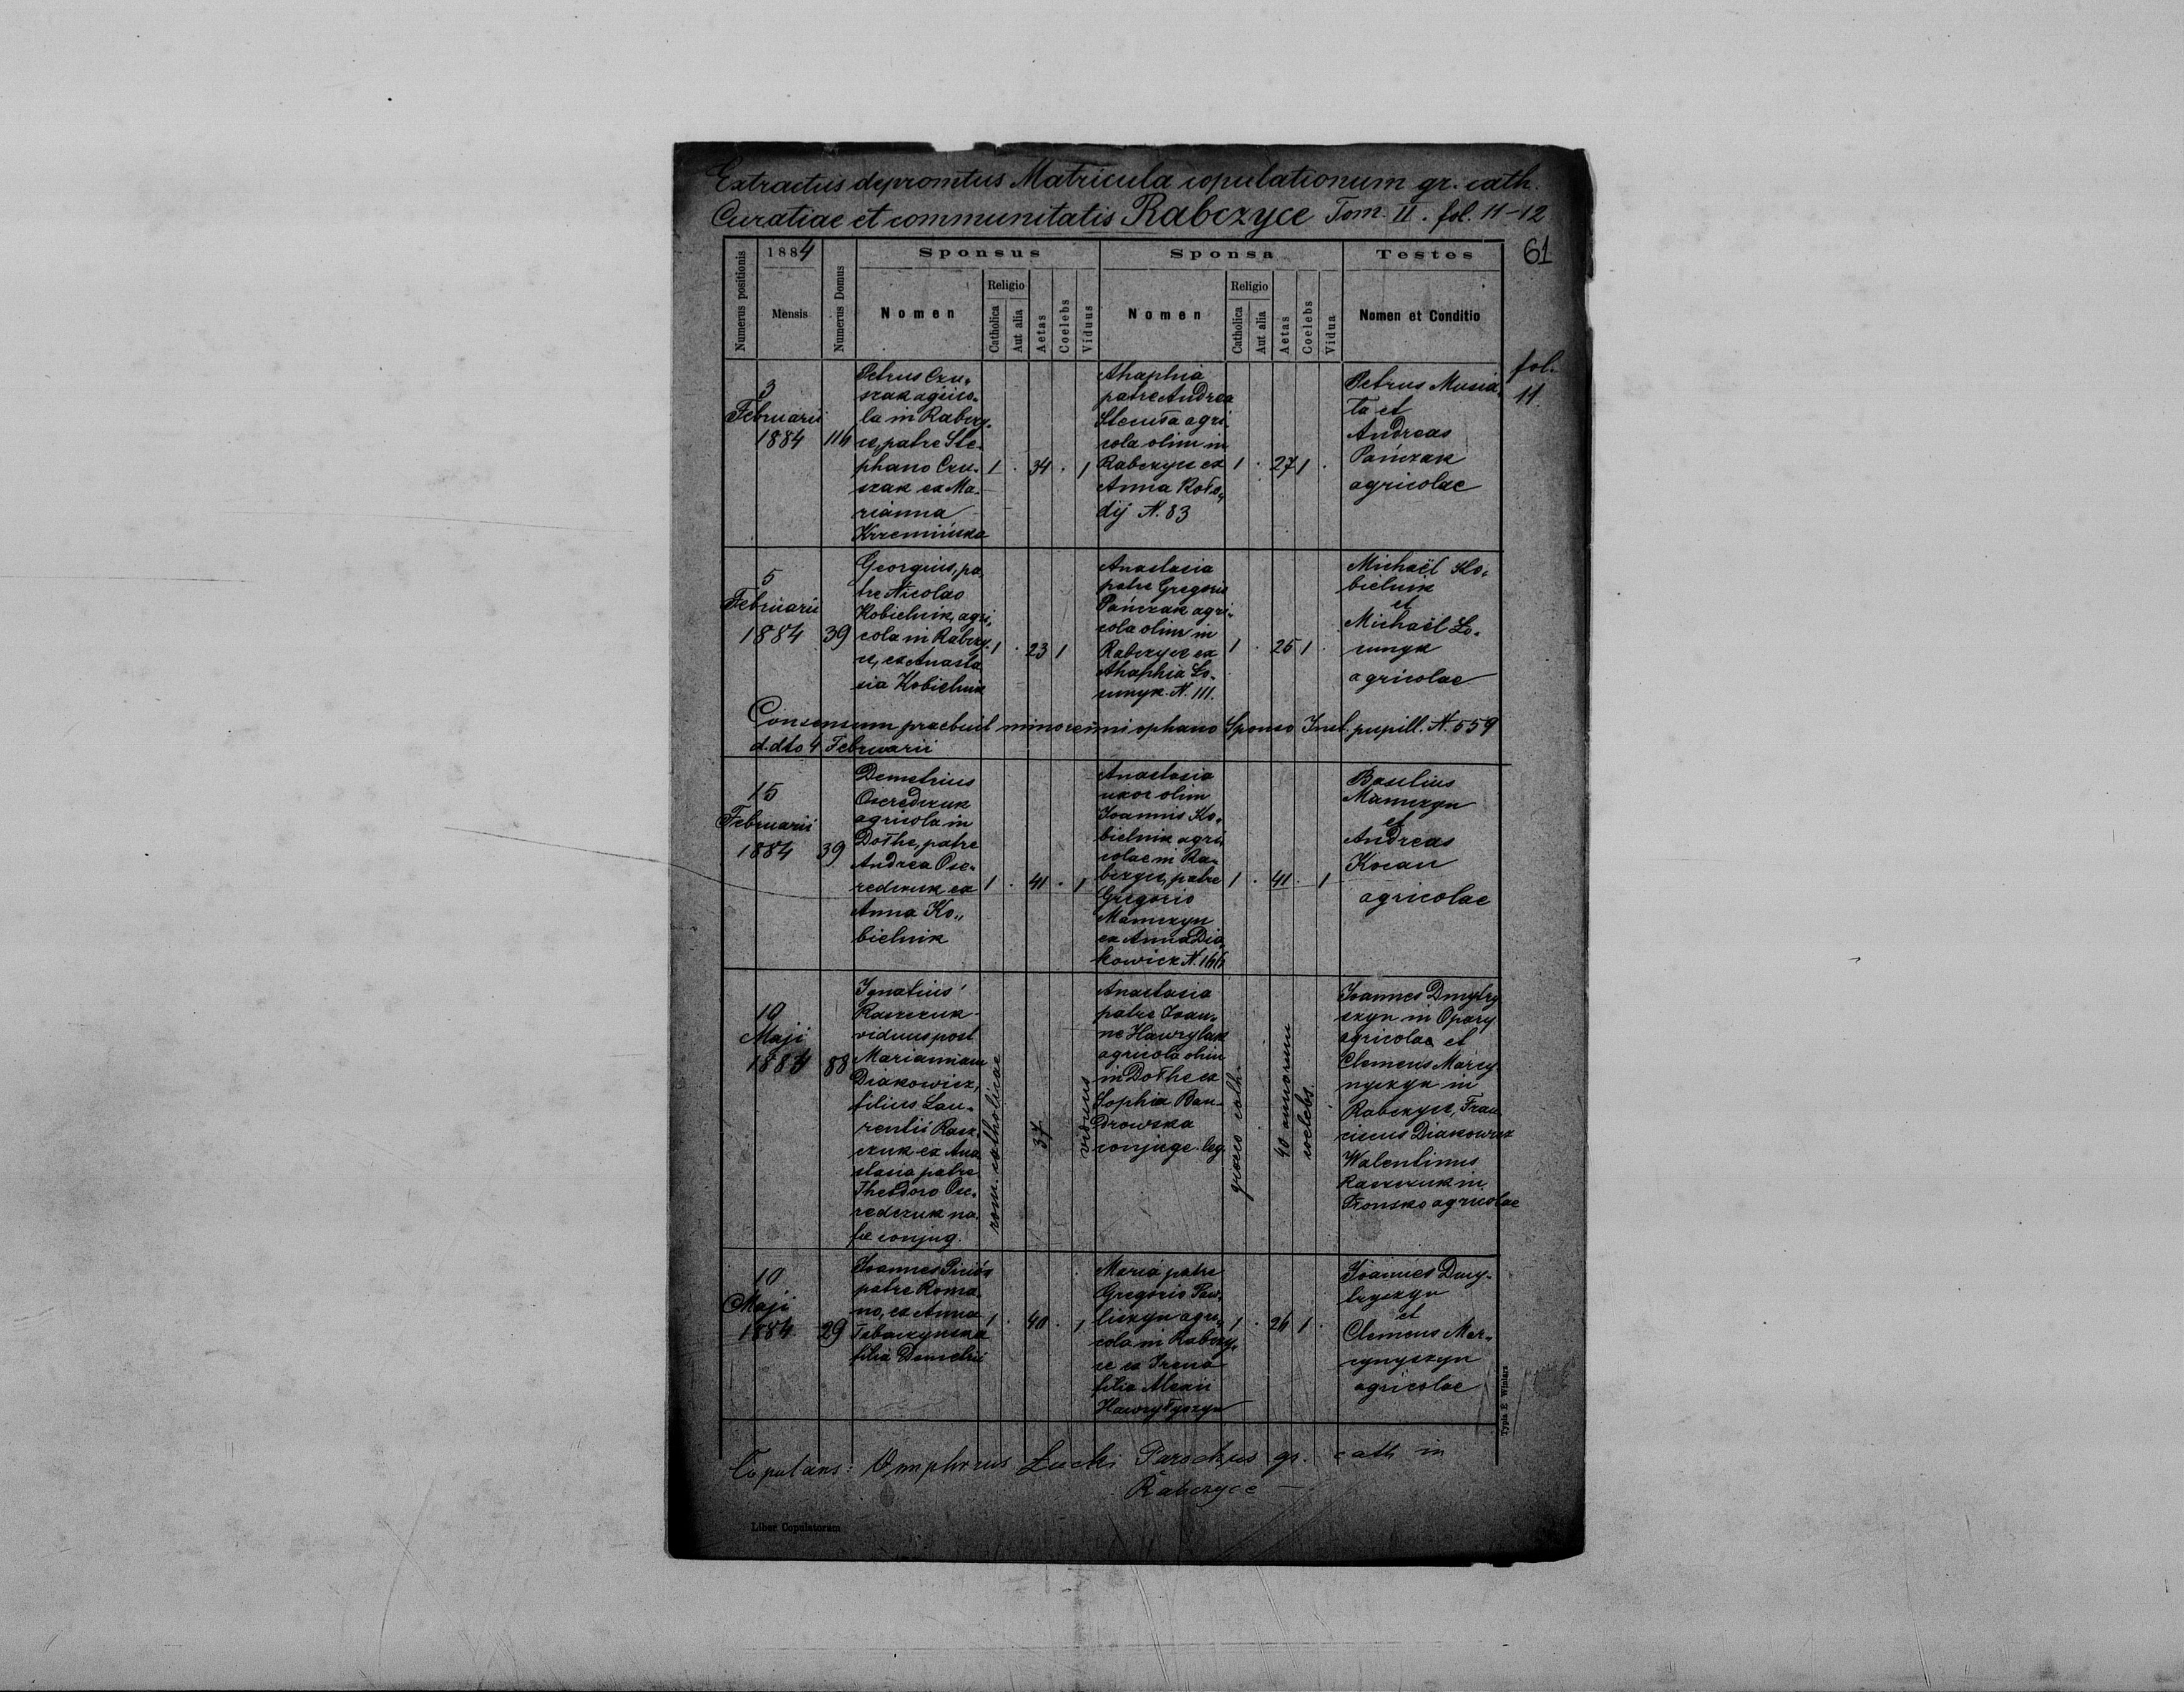 Extractus depromtus Matricula copulationum gr. cath.
Curatiae et communitatis Rabczyce Tom. II. fol. 11-12
61
Numerus positionis
1884
Mensis
Numerus Domus
Sponsus
Nomen
Religio
Catholica
Aut alia
Aetas
Coelebs
Viduus
Sponsa
Nomen
Religio
Catholica
Aut alia
Aetas
Coelebs
Vidua
Testes
Nomen et Conditio
fol.
11.
3
Februarii
1884
114
Petrus Czu-
szak agrico-
la in Rabczy-
ce, patre Ste-
phano Czu-
szak ex Ma-
rianna
Krzemińska
1 . 34 . 1
Ahaphia
patre Andrea
agri-
cola olim in
Rabczyce ex
Anna Koło-
dij N. 83
1 . 27 1 .
Petrus Musia-
ła et
Andreas
Pańczak
agricolae
5
Februarii
1884
39
Georgius, pa-
tre Nicolao
Kobielnik, agri-
cola in Rabczy-
ce, ex Anasta-
sia Kobielnik
1 . 23 1
Anastasia
patre Gregorio
Pańczak agri-
cola olim in
Rabczyce ex
Ahaphia
N. 111.
1 . 25 1 .
Michaël Ko-
bielnik
et
Michaël
agricolae
Consensum praebuit minorenni orphano Sponso Inst. pupill. N. 559
d.dto 4 Februarii
15
Februarii
1884
39
Demetrius
Oseredczuk
agricola in
Dołhe, patre
Andrea Ose-
redczuk ex
Anna Ko-
bielnik
1 . 41 . 1
Anastasia
uxor olim
Joannis Ko-
bielnik agri-
colae in Ra-
bczyce, patre
Gregorio
Mamczyn
ex Anna Dia-
kowicz N. 166
1 . 41 . 1
Basilius
Mamczyn
et
Andreas
Kocan
agricolae
10
Maji
1884
88
Ignatius
Raszczuk
viduus post
Mariannam
Diakowicz,
filius Lau-
rentii Rasz-
czuk ex Ana-
stasia patre
Theodoro Ose-
redczuk na-
ta conjug.
rom. catholicae
37
viduus
Anastasia
patre Joan-
ne Hawrylak
agricola olim
in Dołhe ex
Sophia Ban-
drowska
conjuge leg.
graeco cath.
40 annorum
coelebs.
Joannes Dmytry-
szyn in Opary
agricolae et
Clemens Marcy-
nyszyn in
Rabczyce, Fran-
ciscus Diakowicz
Walentinus
Raszczuk in
Płonsko agricolae
10
Maji
1884
29
Joannes
patre Roma-
no, ex Anna
filia Demetrii
1 . 40 . 1
Maria patre
Gregorio Paw-
liszyn agri-
cola in Rabczy-
ce ex Irena
filia Alexii
Hawryłyszyn
1 . 26 1 .
Joannes Dmy-
tryszyn
et
Clemens Mar-
cynyszyn
agricolae
Typis E Winiarz
Copulans: Omphorus Lucki Parochus gr. cath in
Rabczyce
Liber Copulatorum